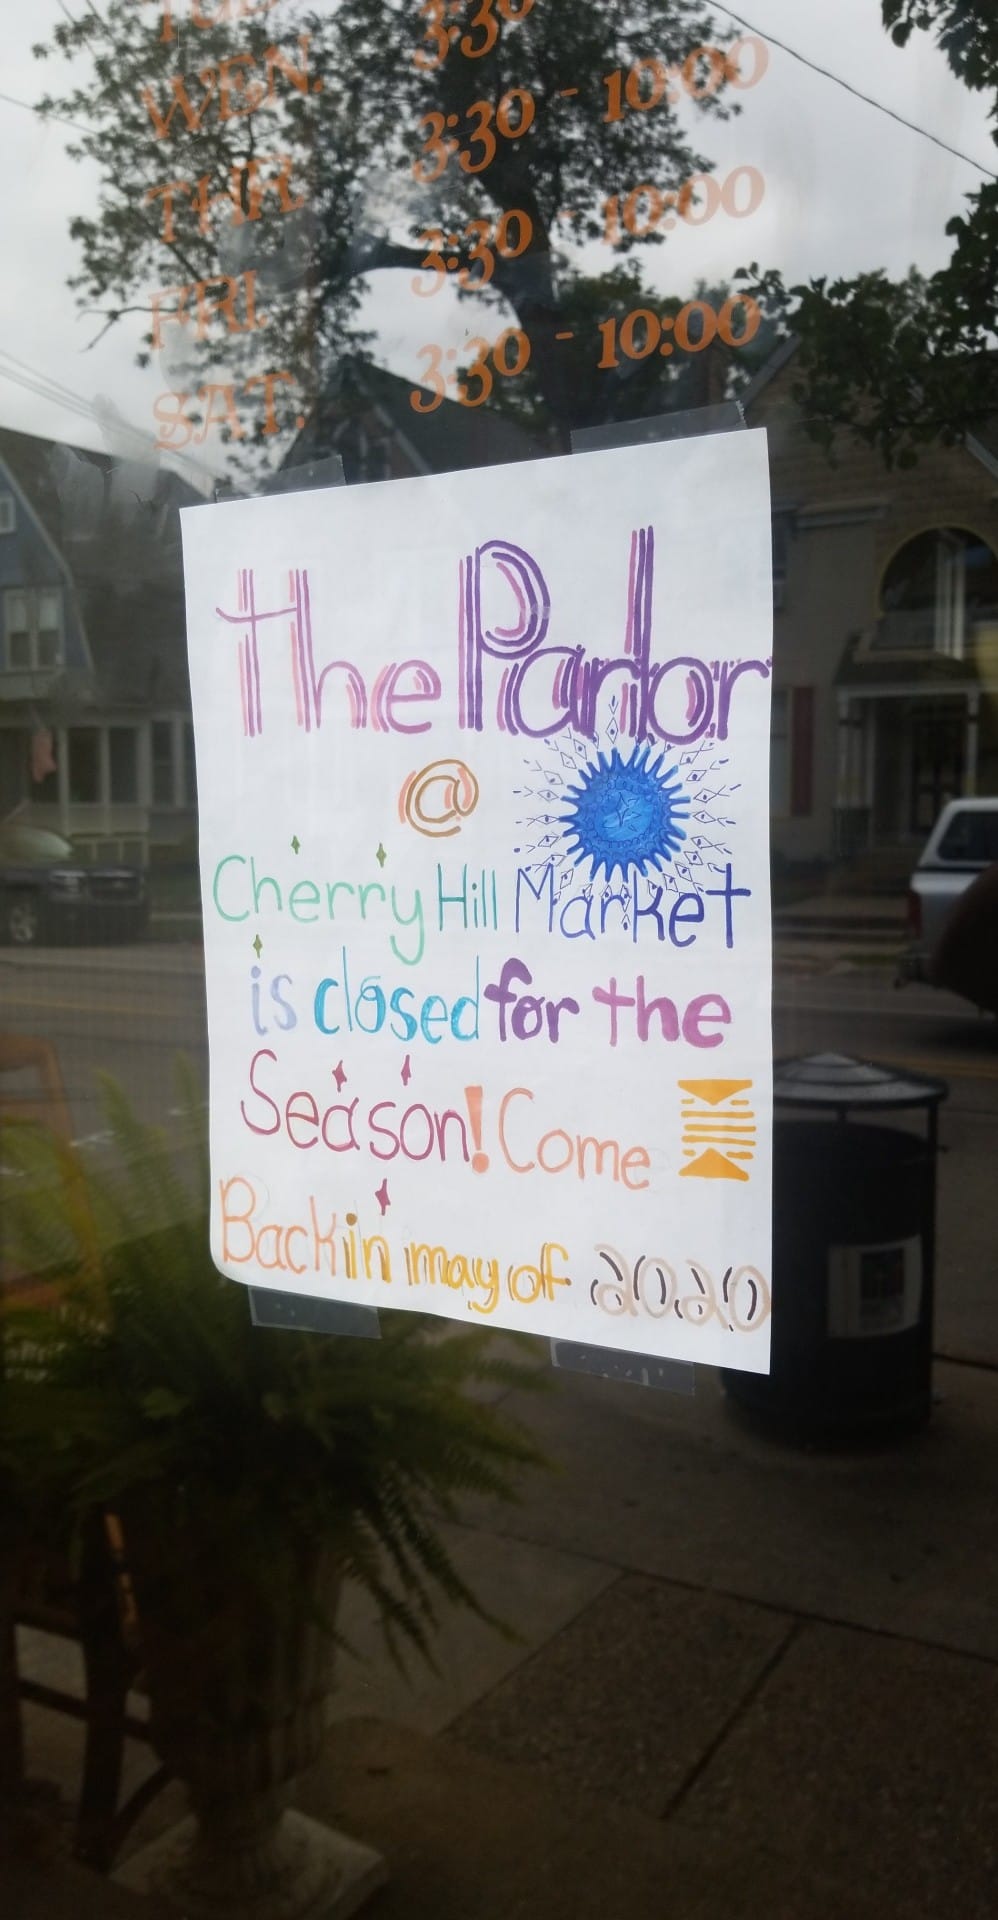 WEN. 3:30
THR. 3:30 - 10:00
FRI. 3:30 - 10:00
SAT. 3:30 - 10:00
The Parlor
@
Cherry Hill Market
is closed for the
Season! Come
Back in may of 2020